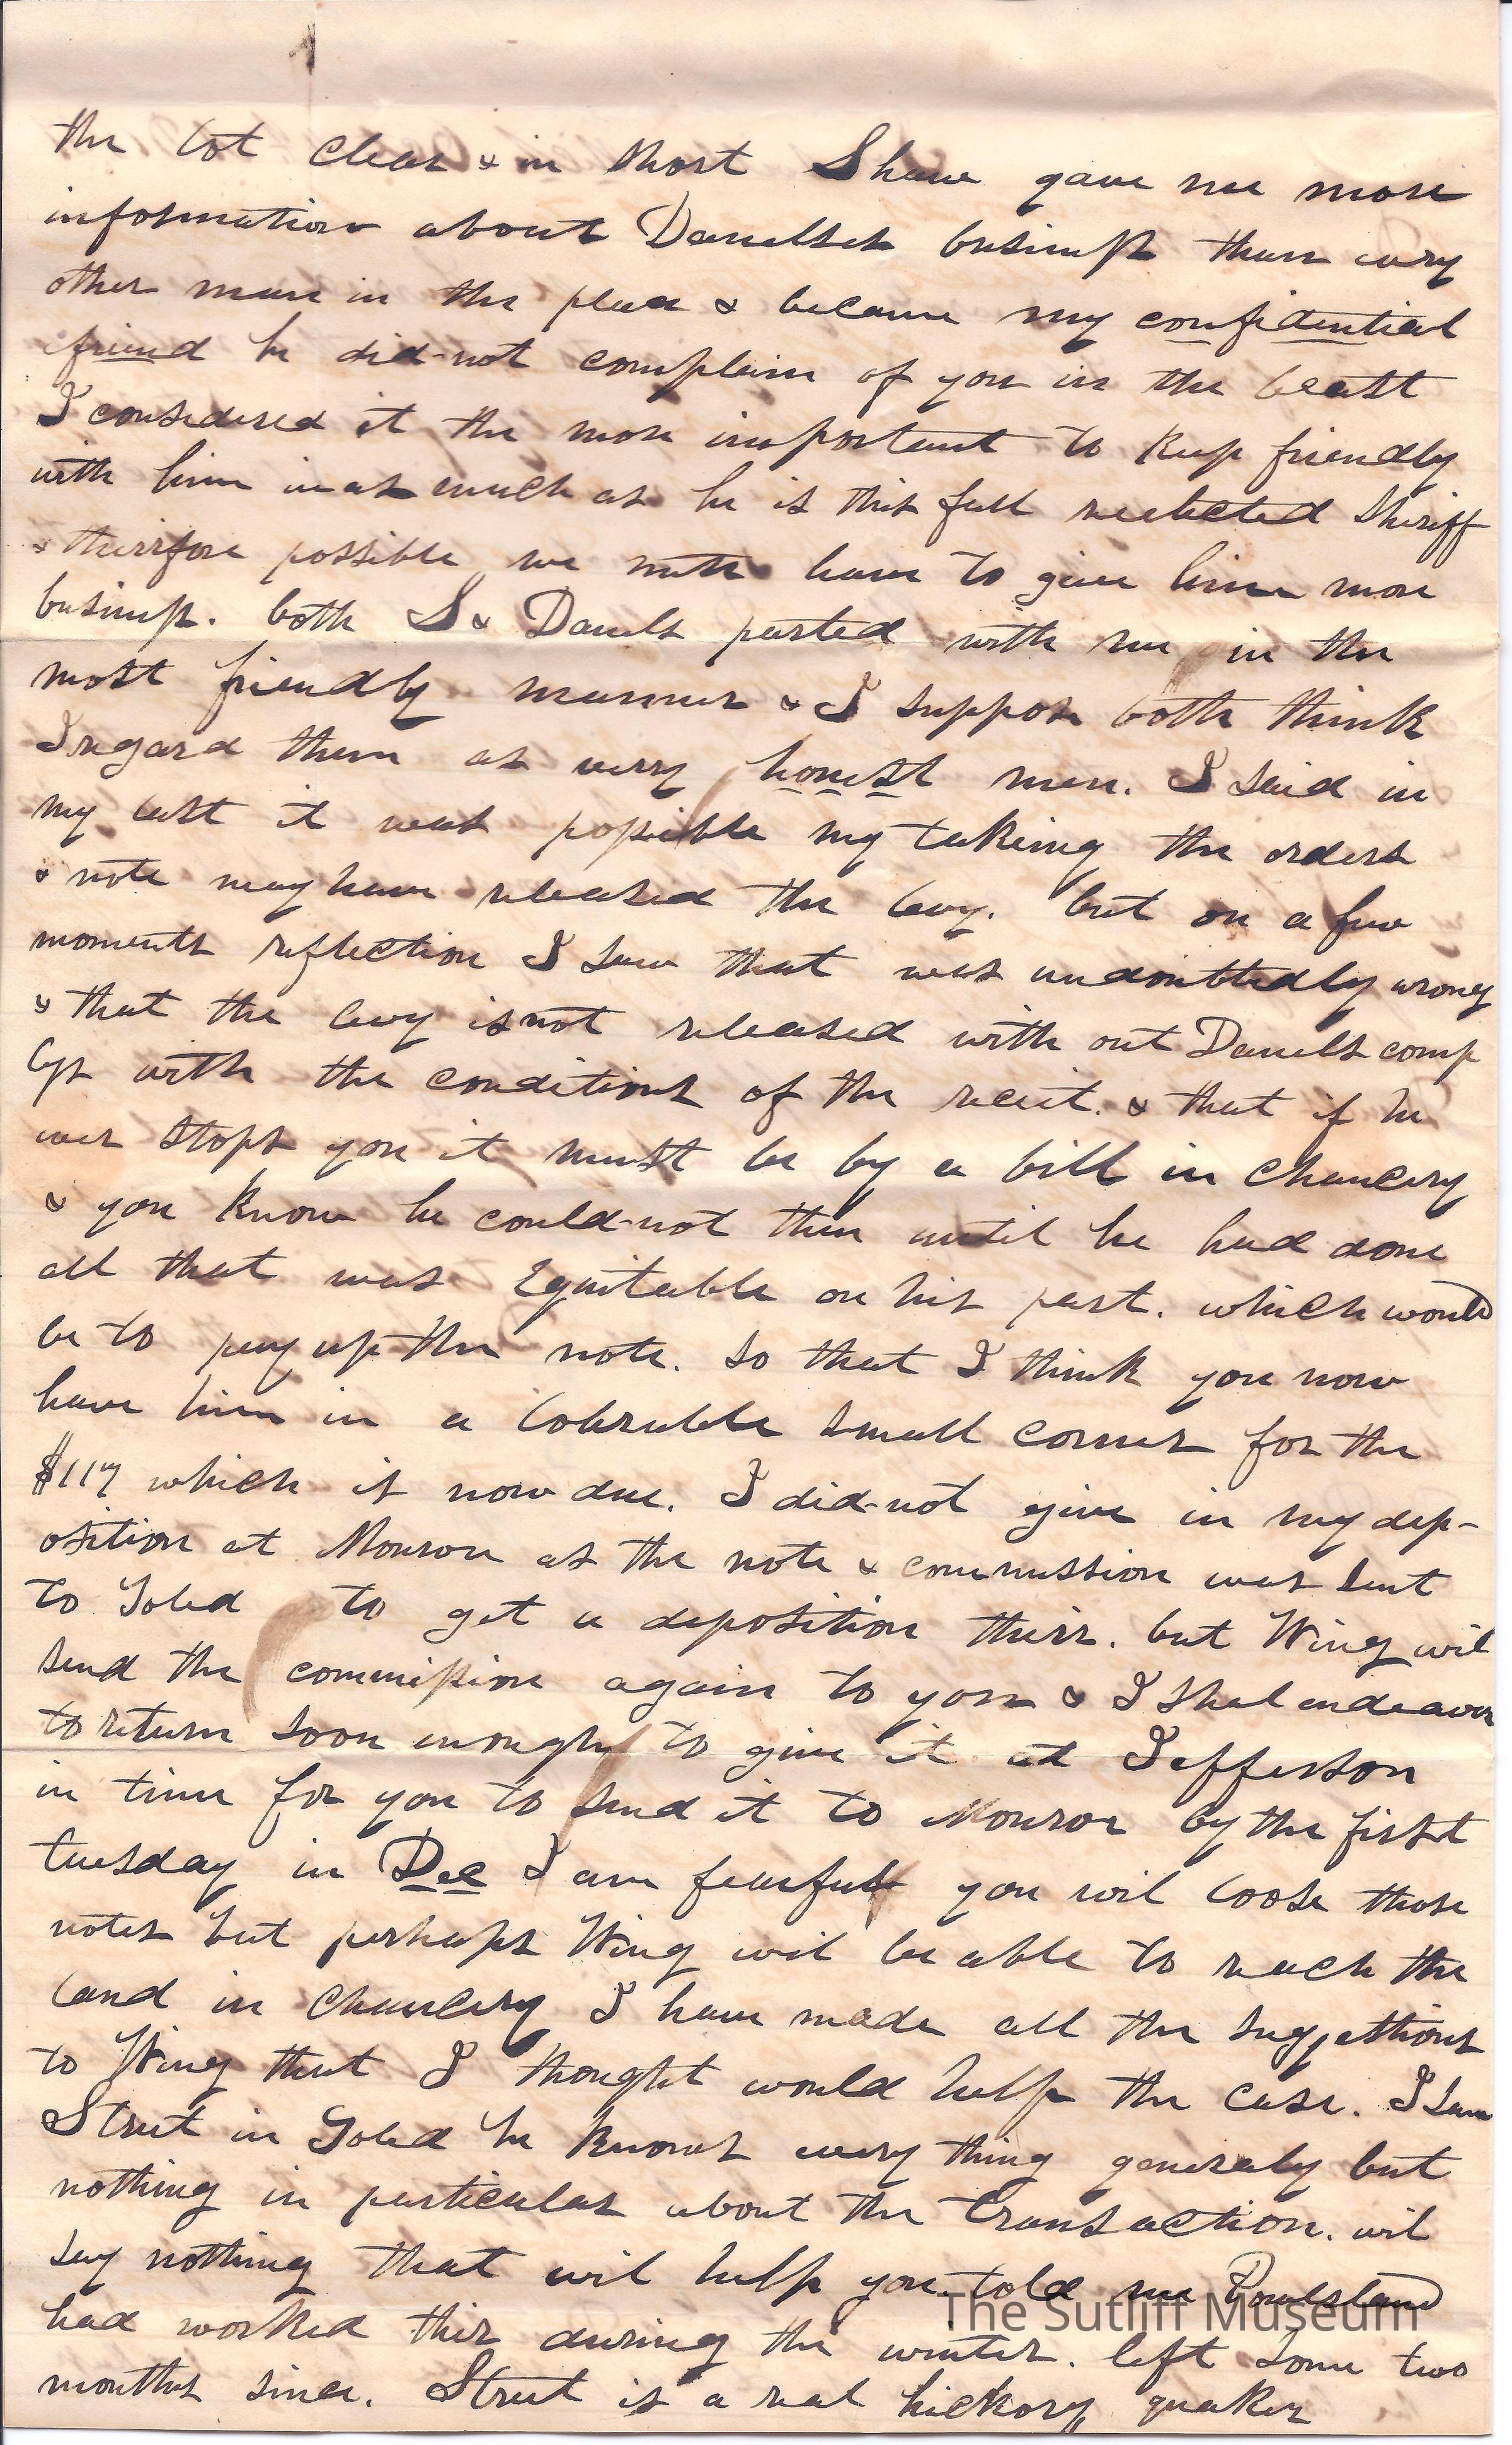 the lot clear & in short Shaw gave me more
information about Danielses business than evry
other man in the place & became my confidential
friend he did-not complain of you in the least
I considered it the more important to keep friendly
with him in as much as he is this fall reelected Sheriff
& therrifore possible we may have to give him more
business. both S & Daniels parted with me in the
most friendly manner & I suppose both think
I regard them as very honest men. I said in
my last it was possible my takeing the orders
& note may have released the levy. but on a few
moments reflection I saw that was undoubtedly wrong
& that the levy is not released with out Daniels comp
lys with the conditions of the receit. & that if he
ever stops you it must be by a bill in chancery
& you know he could-not then until he had done
all that was Equitable on his part. which would
be to pay up the note. so that I think you now
have him in a tolerable small corner for the
$117 which is now due. I did-not give in my dep-
osition at Monroe as the note & commission was sent
to Toled to get a deposition theirr. but Wing wil
send the commission again to you & I shal endeavor
to return soon enough to give it at Jefferson
in time for you to send it to Monroe by the first
tuesday in Dec I am fearful you wil loose those
notes but perhaps Wing wil be able to reach the
land in chancery I have made all the suggestions
to Wing that I thought would help the case. I saw
Street in Toled he knows every thing generaly but
nothing in particular about the transaction. wil
say nothing that wil help you. told me
had worked their during the winter. left some two
months since. Street is a real hickory quaker
The Sutliff Museum